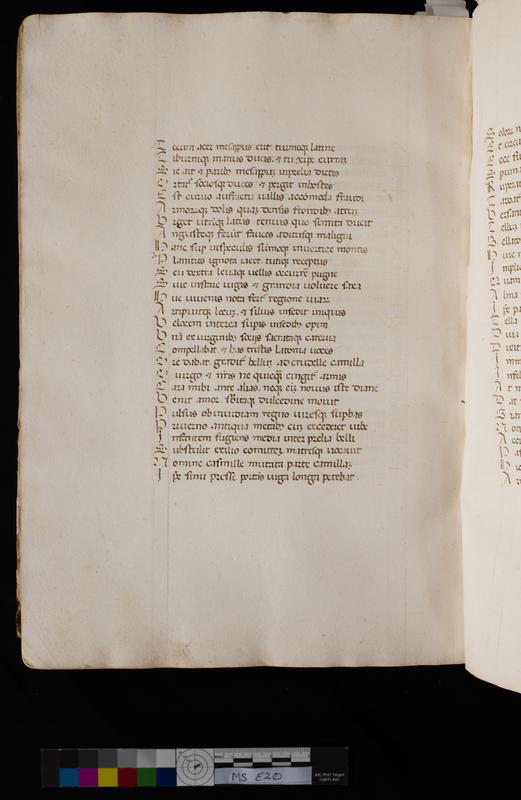 Tecum acer mesapus erit turmeqʒ latine
Tiburniqʒ manus ducis. & tu cipe curaʒ
Sic ait & paribʒ mesapuʒ inprelia dictis
Ortat͛ sociosqʒ duces & pergit inhostes
Est curuo anfractu uallis accomoda fraudi
Armorūqʒ dolis quaʒ densis frondibʒ atruʒ
Vrget utrīqʒ latus tenuis quo semita ducit
Angusteqʒ ferūt fauces aditusqʒ maligni
Hanc sup inspeculis sūmoqʒ inuertice montis
Planities ignota iacet. tutiqʒ receptus
Seu dextra leuaqʒ uelis occurrē pugne
Siue instare iugis & grandia uoluere saxa
Huc iuuenis nota fert͛ regione uiaꝝ
Arripuitqʒ locuʒ. & siluis insedit iniquis
Velocem interea supis insedibʒ opim
Vnā ex uirginibʒ socijs sacraqʒ caterua
Compellabat. & has tristis latonia uoces
Ore dabat. gradit͛ belluʒ ad crudelle camilla
O uirgo & nr̄is ne quicqʒ cingit͛ armis
Cara mihi ante alias. neqʒ eīʒ nouus iste diane
Venit amor. sbitaqʒ dulcedine mouit
Pulsus ob inuidiam regno uiresqʒ supbas
Priuerno antiqua metabʒ cuʒ excederet urbe
Infantem fugiens media inter prelia belli
Substulit exilio comiteʒ. matrisqʒ uocauit
Nomine casmille mutata parte camillaʒ
Ipe sinu pre se portās iuga longa petebat.
MS E20